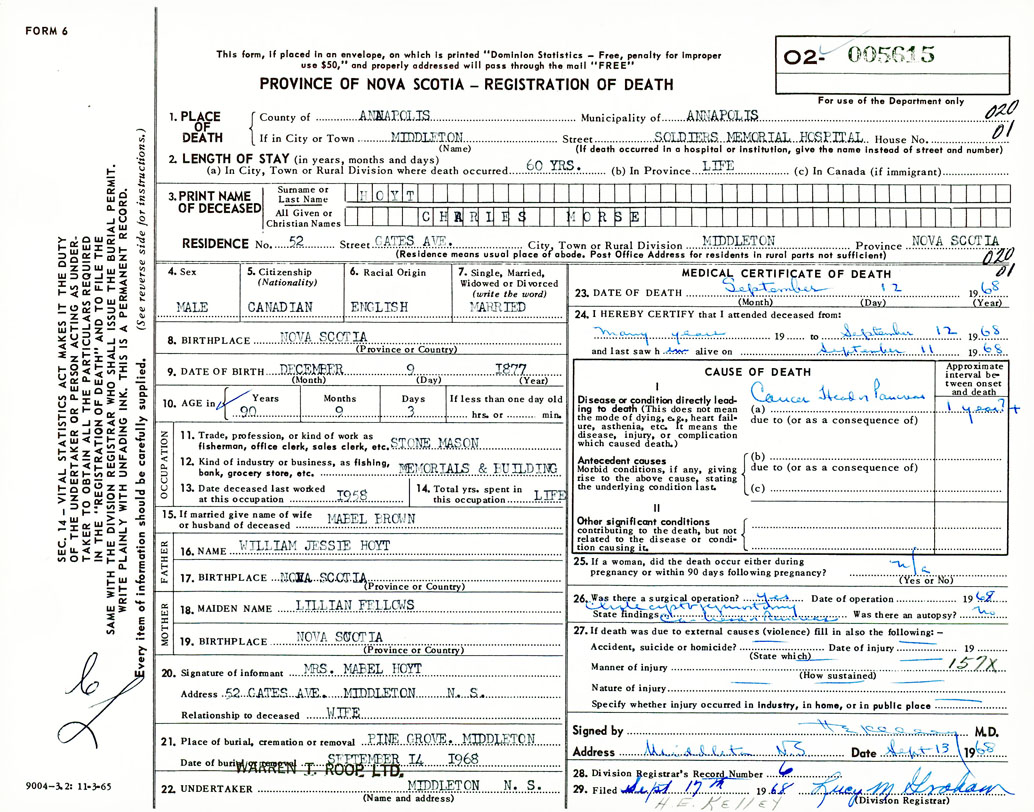 FORM 6
This form, if placed in an envelope, on which is printed "Dominion Statistics – Free, penalty for improper
use $50," and properly addressed will pass through the mail "FREE"
PROVINCE OF NOVA SCOTIA – REGISTRATION OF DEATH
02- 005615
For use of the Department only
020
01
1. PLACE OF DEATH
County of ANNAPOLIS Municipality of ANNAPOLIS
If in City or Town MIDDLETON Street SOLDIERS MEMORIAL HOSPITAL House No.
(Name) (If death occurred in a hospital or institution, give the name instead of street and number)
2. LENGTH OF STAY (in years, months and days)
(a) In City, Town or Rural Division where death occurred 60 YRS. (b) In Province LIFE (c) In Canada (if immigrant)
3. PRINT NAME OF DECEASED
Surname or Last Name HOYT
All Given or Christian Names CHARLES MORSE
RESIDENCE No. 52 Street GATES AVE. City, Town or Rural Division MIDDLETON Province NOVA SCOTIA
(Residence means usual place of abode. Post Office Address for residents in rural parts not sufficient)
020
01
4. Sex
MALE
5. Citizenship
(Nationality)
CANADIAN
6. Racial Origin
ENGLISH
7. Single, Married,
Widowed or Divorced
(write the word)
MARRIED
8. BIRTHPLACE NOVA SCOTIA
(Province or Country)
9. DATE OF BIRTH DECEMBER 9 1877
(Month) (Day) (Year)
10. AGE in Years Months Days If less than one day old
90 9 3 hrs. or min.
OCCUPATION
11. Trade, profession, or kind of work as
fisherman, office clerk, sales clerk, etc. STONE MASON
12. Kind of industry or business, as fishing,
bank, grocery store, etc. MEMORIALS & BUILDING
13. Date deceased last worked
at this occupation 1958
14. Total yrs. spent in
this occupation LIFE
15. If married give name of wife
or husband of deceased MABEL BROWN
FATHER
16. NAME WILLIAM JESSIE HOYT
17. BIRTHPLACE NOVA SCOTIA
(Province or Country)
MOTHER
18. MAIDEN NAME LILLIAN FELLOWS
19. BIRTHPLACE NOVA SCOTIA
(Province or Country)
20. Signature of informant MRS. MABEL HOYT
Address 52 GATES AVE. MIDDLETON N. S.
Relationship to deceased WIFE
21. Place of burial, cremation or removal PINE GROVE. MIDDLETON
Date of burial or removal SEPTEMBER 14 1968
WARREN T. ROOP LTD.
22. UNDERTAKER MIDDLETON N. S.
(Name and address)
MEDICAL CERTIFICATE OF DEATH
23. DATE OF DEATH September 12 1968
(Month) (Day) (Year)
24. I HEREBY CERTIFY that I attended deceased from:
many years 19 to September 12 1968
and last saw h im alive on September 11 1968
CAUSE OF DEATH
Approximate
interval be-
tween onset
and death
I
Disease or condition directly lead-
ing to death (This does not mean
the mode of dying, e.g., heart fail-
ure, asthenia, etc. It means the
disease, injury, or complication
which caused death.)
(a) Cancer Head of Pancreas 1 year? +
due to (or as a consequence of)
Antecedent causes
Morbid conditions, if any, giving
rise to the above cause, stating
the underlying condition last.
(b)
due to (or as a consequence of)
(c)
II
Other significant conditions
contributing to the death, but not
related to the disease or condi-
tion causing it.
25. If a woman, did the death occur either during
pregnancy or within 90 days following pregnancy? n/a
(Yes or No)
26. Was there a surgical operation? yes Date of operation 1968
State findings Ca. head of Pancreas Was there an autopsy? no
27. If death was due to external causes (violence) fill in also the following: –
Accident, suicide or homicide? Date of injury 19
(State which)
Manner of injury 157X
(How sustained)
Nature of injury
Specify whether injury occurred in Industry, in home, or in public place
Signed by M.D.
Address Middleton NS Date Sept 13 1968
28. Division Registrar's Record Number 6
29. Filed Sept 17th 1968 Lucy M Graham
(Division Registrar)
H. E. KELLEY
SEC. 14 – VITAL STATISTICS ACT MAKES IT THE DUTY
OF THE UNDERTAKER OR PERSON ACTING AS UNDER-
TAKER TO OBTAIN ALL THE PARTICULARS REQUIRED
IN THE "REGISTRATION OF DEATH" AND TO FILE THE
SAME WITH THE DIVISION REGISTRAR WHO SHALL ISSUE THE BURIAL PERMIT.
WRITE PLAINLY WITH UNFADING INK. THIS IS A PERMANENT RECORD.
Every item of information should be carefully supplied. (See reverse side for instructions.)
9004-3.2: 11-3-65